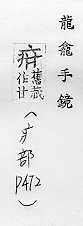 龍龕手鏡
疳
舊藏
作甘
(疒部
P472)